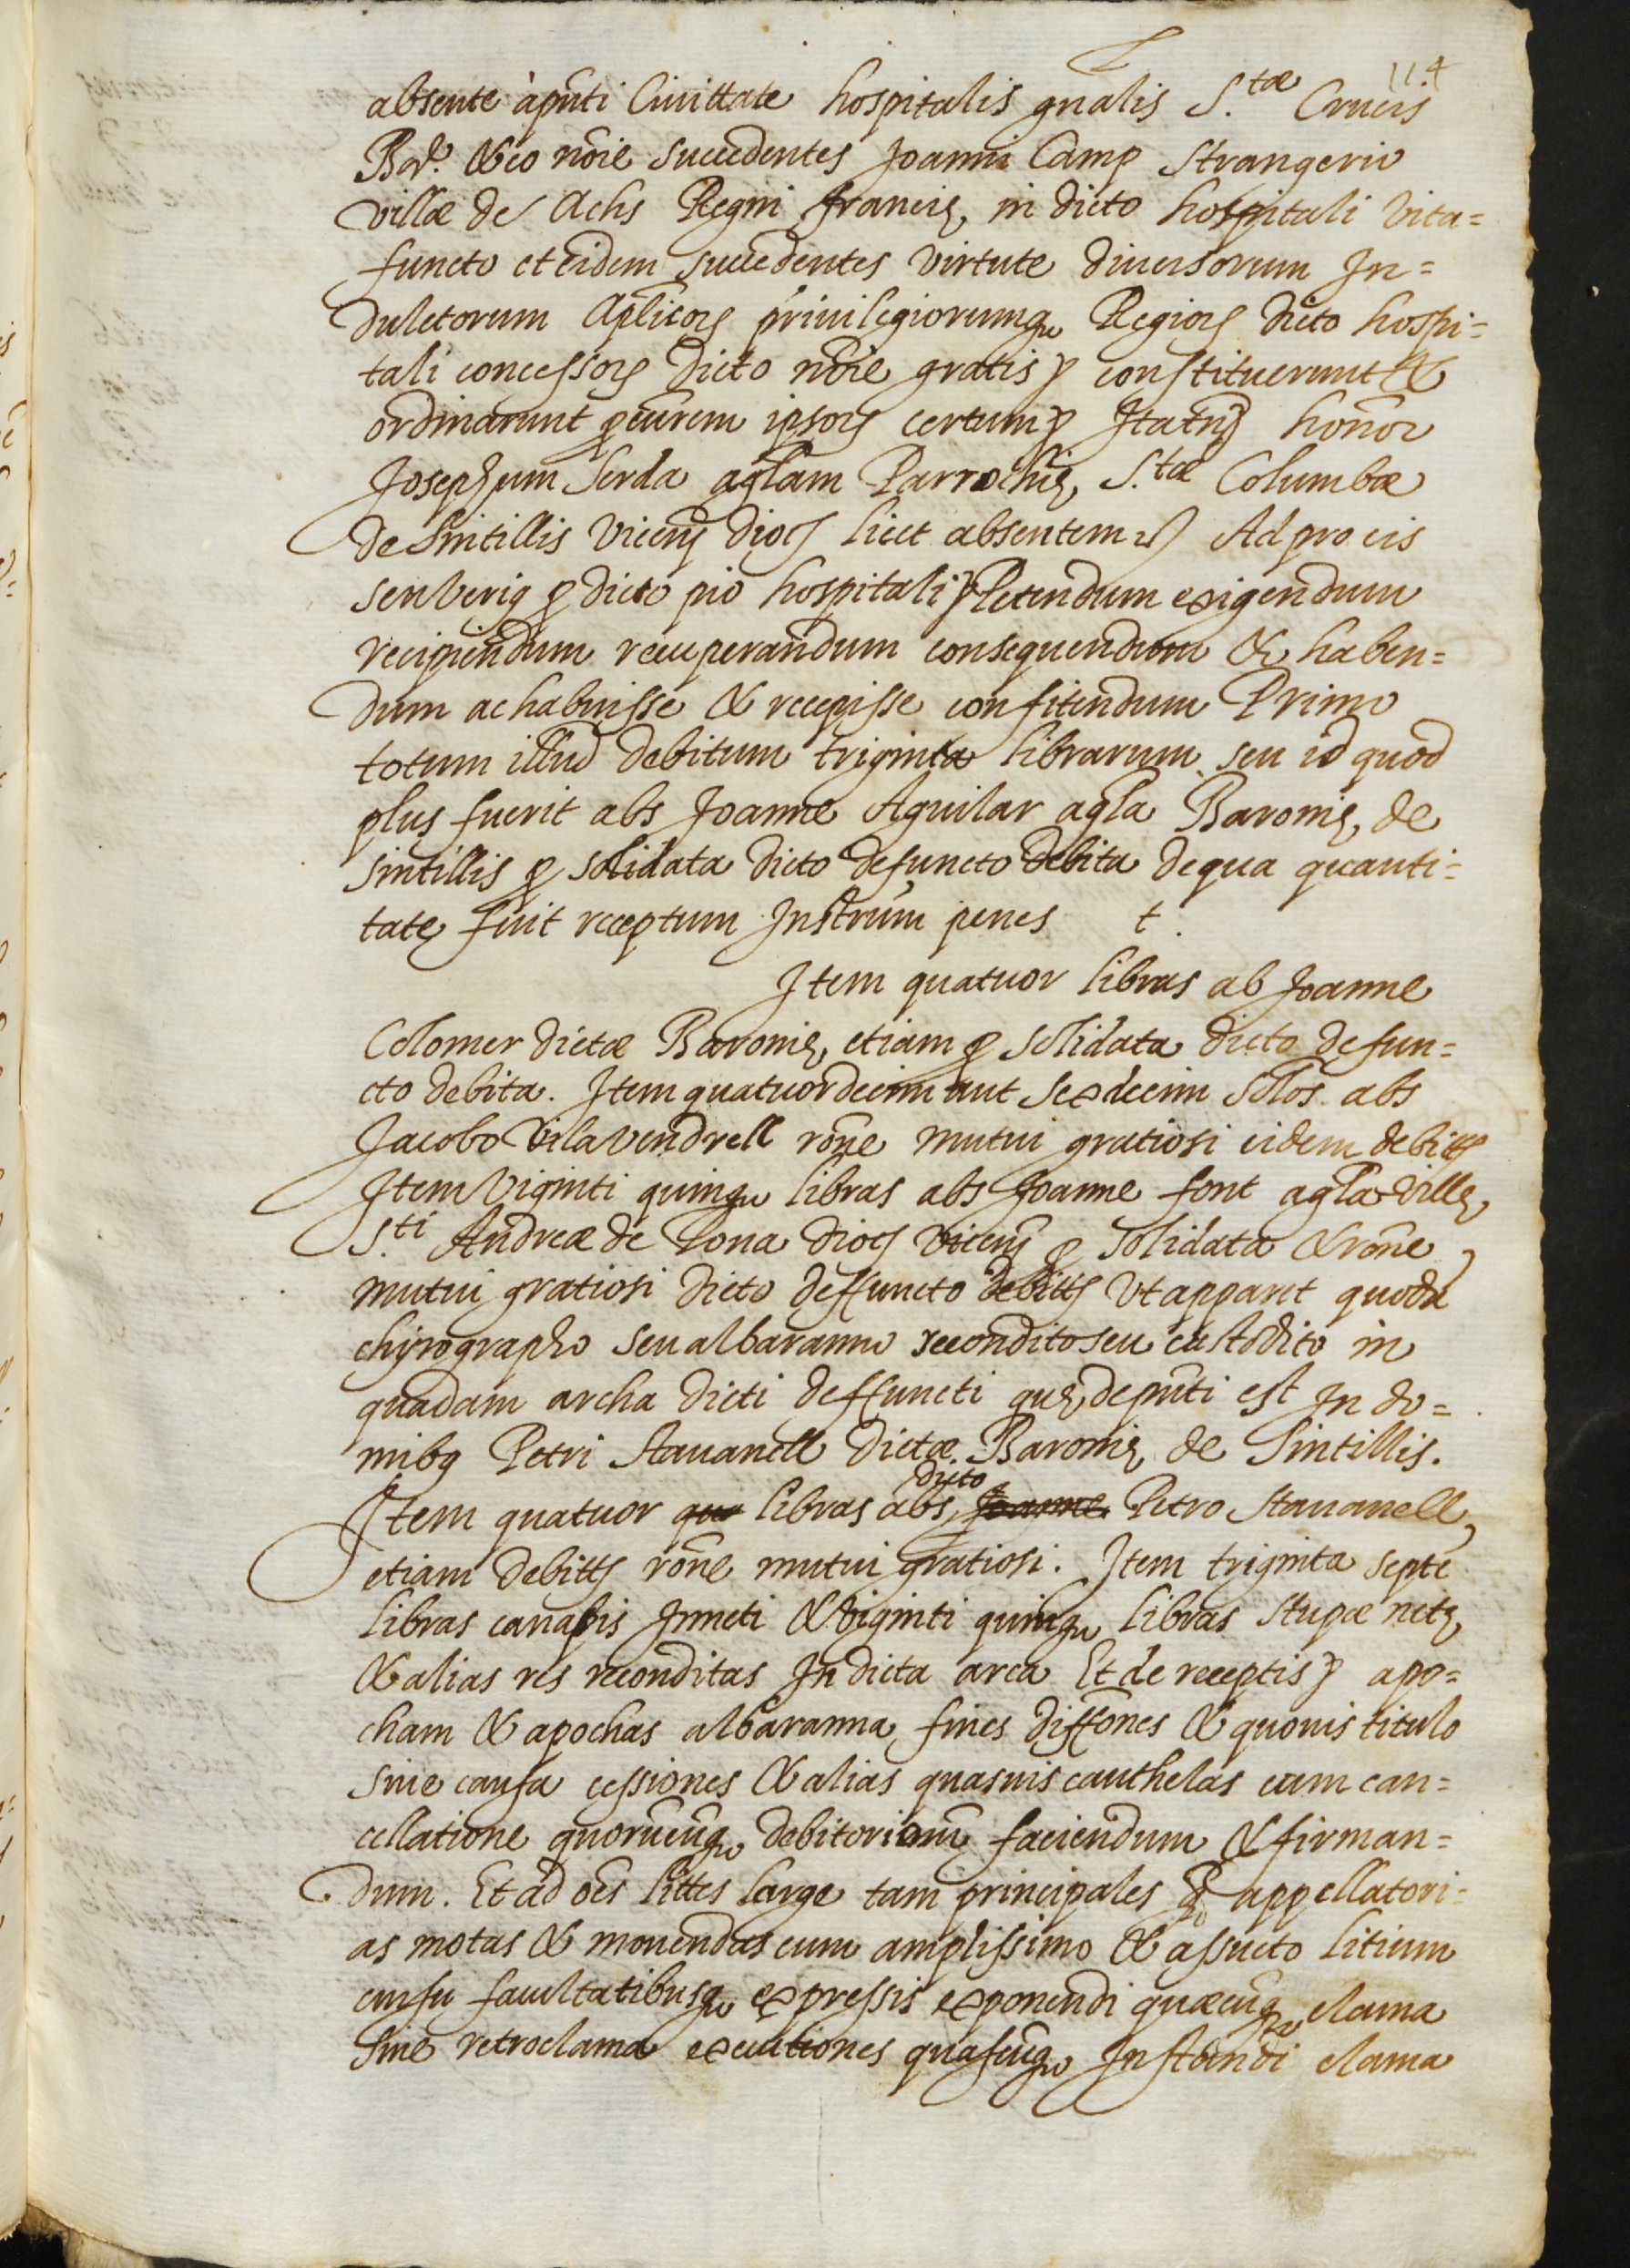 114
absente àp̃nti Civittate hospitalis gñalis S.tæ Crucis
Bar.e & eo nõie succedentes Joanni Camp Strangerio
villæ de Achs Regni francię, in dicto hospitali vita=
functo et eidem succedentes virtute diversorum In=
dultorum Aplicoꝝ privilegiorumq̨ Regioꝝ dicto hospi=
tali concessoꝝ dicto nõie gratis & constituerunt &
ordinarunt ꝓcurem̃ ipsoꝝ certum & Itatñq̨ honor̃
Josephum Serda agl̃am Parrochię, S.tæ Columbæ
de Sintillis Viceñ dioc̨ licet absentem & Ad pro eis
seu verius ꝓ dicto pio hospitali & Petendum exigendum
recipiendum recuperandum consequendum & haben=
dum ac habuisse & recepisse confitendum Primo
totum illud debitum triginta librarum seu id quod
plus fuerit abs Joanne Aguilar agl̃a Baronię, de
Sintillis ꝓ solidata dicto defuncto debita de qua quanti=
tate fuit receptum Instrum̃ penes t.
Item quatuor libras ab Joanne
Colomer dictæ Baronię, etiam ꝓ solidata dicto defun=
cto debita. Item quatuordecim aut sexdecim solos abs
Jacobo Vilavendrell rõne mutui gratiosi eidem debitis
Item Viginti quinq̨ libras abs Joanne font agl̃a Villę,
S.ti Andreæ de Tona dioc̨ Viceñ ꝓ Solidata & rõne
mutui gratiosi dicto deffuncto debitis Ut apparet quodã
chyrographo seu albaranno recondito seu custodito in
quadam archa dicti deffuncti quę, de p̃nti est In do=
mibq̨ Petri Stavanell dictæ Baronię de Sintillis.
Item quatuor qua libras abs dicto Joanne Petro Stavanell,
etiam debitis rõne mutui gratiosi. Item triginta septẽ
libras canapis Juncti & viginti quinq̨ libras stupæ netę
& alias res reconditas In dicta arca Et de receptis & apo=
cham & apochas albaranna, fines diffões & quovis titulo
sive causa cessiones & alias quasvis cauthelas cum can=
cellatione quorũcũq̨ debitoriorũ, faciendum & firman=
dum. Et ad oẽs littes large tam principales q̃ appellatori=
as motas & movendas cum amplissimo & assueto litium
cursu facultatibusq̨ expressis exponendi quæcũq̨ clama
sive retroclama executiones quascũq̨ Instandi clama